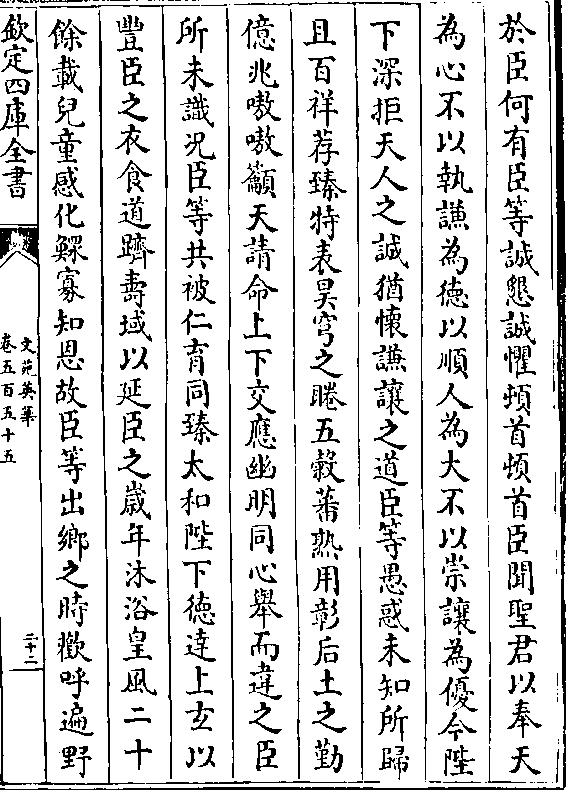 於臣何有臣等誠懇誠懼頓首頓首臣聞聖君以奉天
為心不以執謙為德以順人為大不以崇讓為優今陛
下深拒天人之誠猶懐謙讓之道臣等愚惑未知所歸
且百祥荐臻特表昊穹之睠五榖蕃熟用彰后土之勤
億兆嗷嗷籲天請命上下交應幽明同心舉而違之臣
所未識况臣等共被仁育同臻太和陛下徳達上玄以
豐臣之衣食道躋壽域以延臣之歲年沐浴皇風二十
餘載兒童感化鰥寡知恩故臣等出鄉之時歡呼遍野
欽定四庫全書
文苑英華
卷五百五十五
二十二